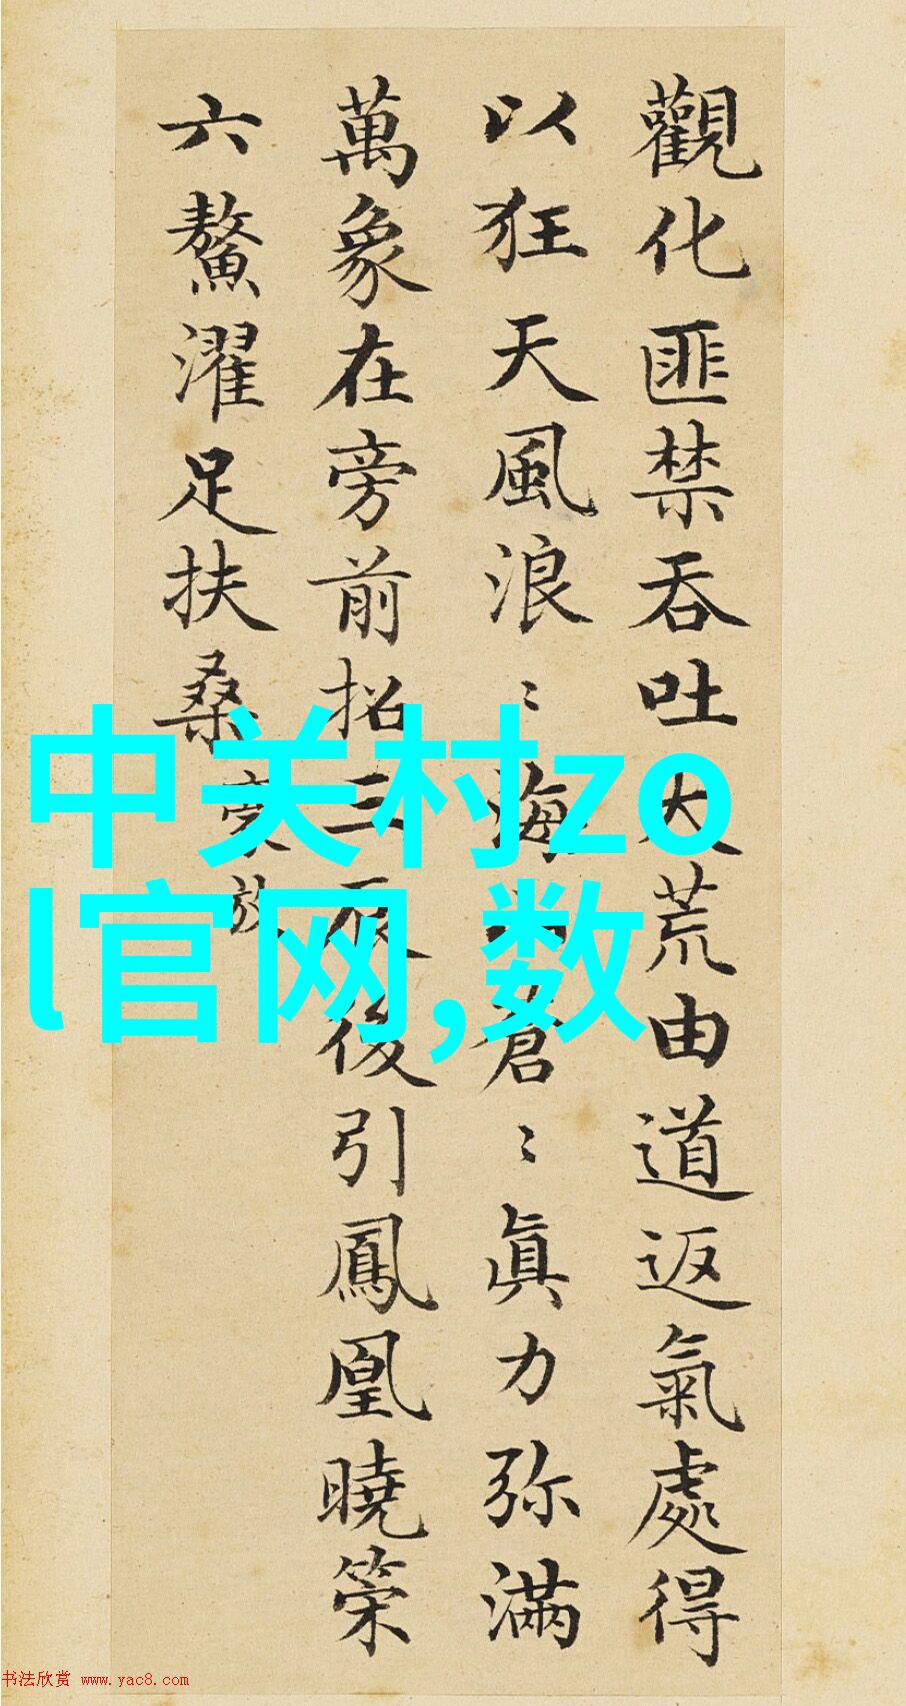 觀化匪禁吞吐大荒由道返氣處得
以狂天風浪〻海蒼〻眞力弥滿
萬象在旁前招三辰後引鳳凰曉策
六鰲濯足扶桑
豪放
中关村zo
l官网,数
书法欣赏 www.yac8.com